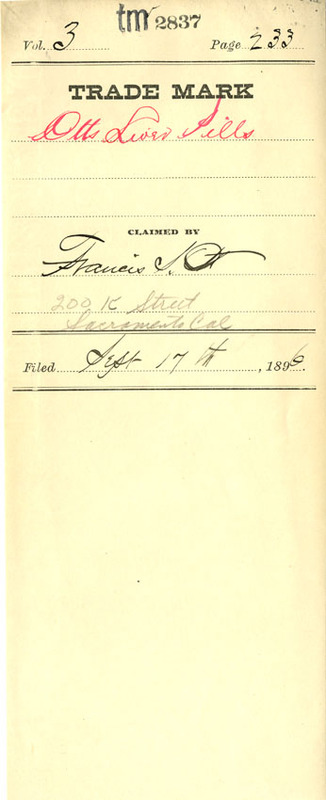 tm 2837
Vol. 3 Page 233
TRADE MARK
Otts Liver Pills
CLAIMED BY
Francis S. Ott
200 K Street
Sacramento Cal
Filed Sept 17th, 1896.